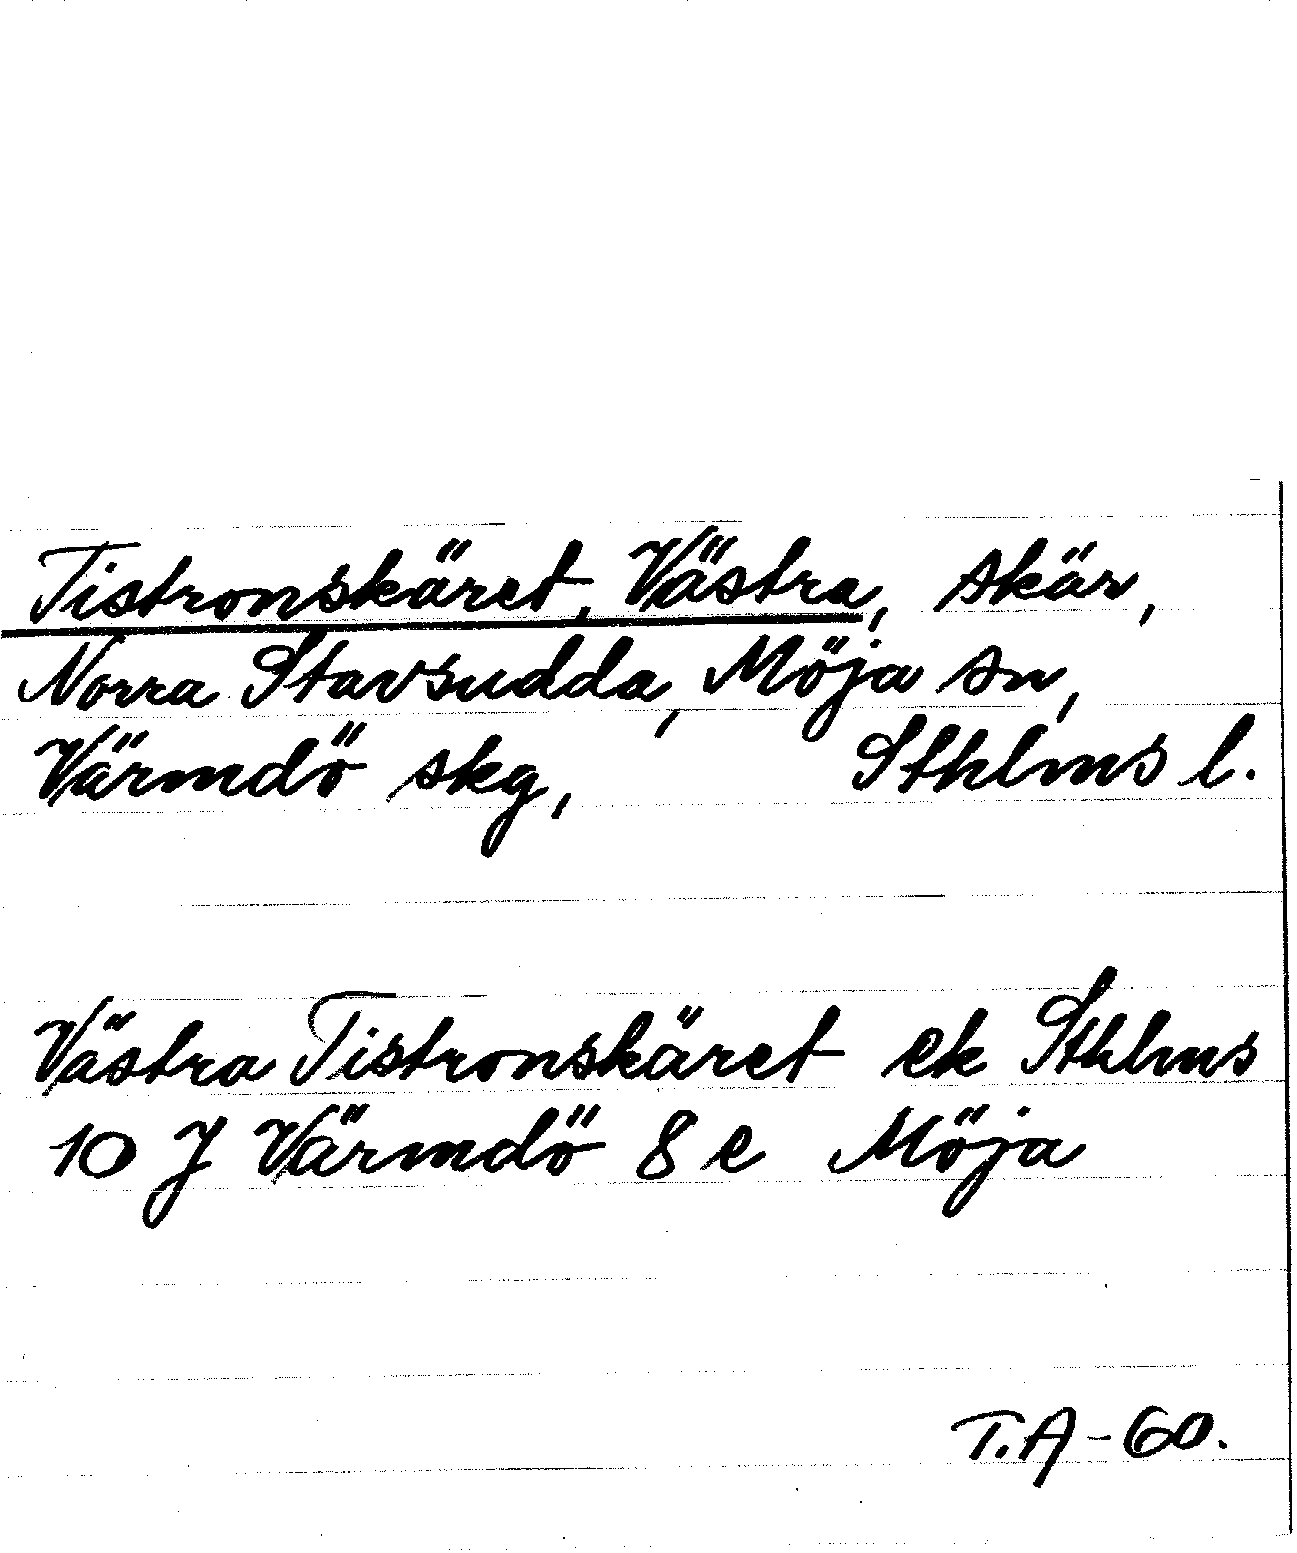 Tistronskäret, Västra, skär,
Norra Stavsudda, Möja sn,
Värmdö skg, Sthlms l.
Västra Tistronskäret ek Sthlms
10 J Värmdö 8 e Möja
T.A-60.